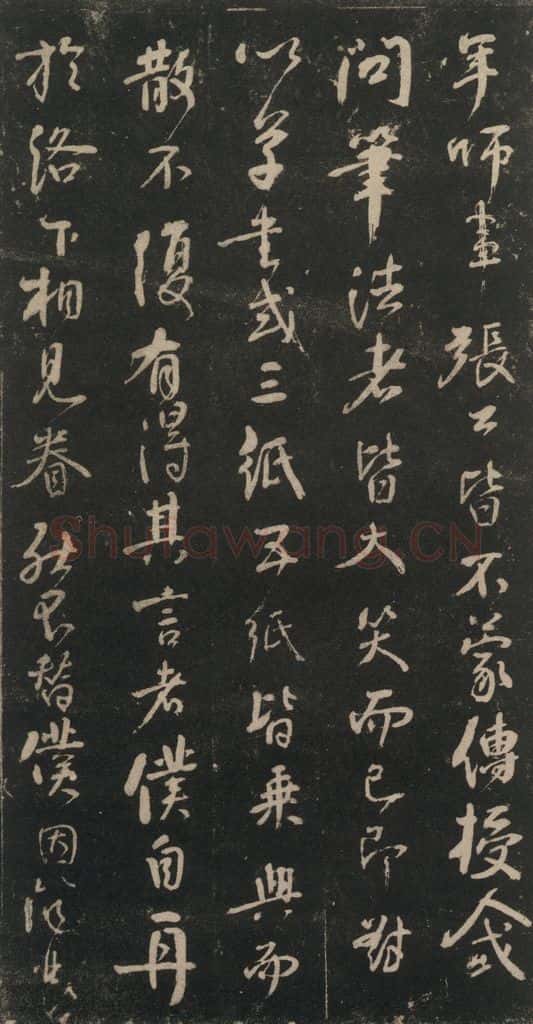 年師畫張公皆不蒙傳授人或
問筆法者皆大笑而已即對
以草書或三紙五紙皆乘興而
散不復有得其言者僕自再
於洛下相見眷然不替僕因
Shufawang.CN